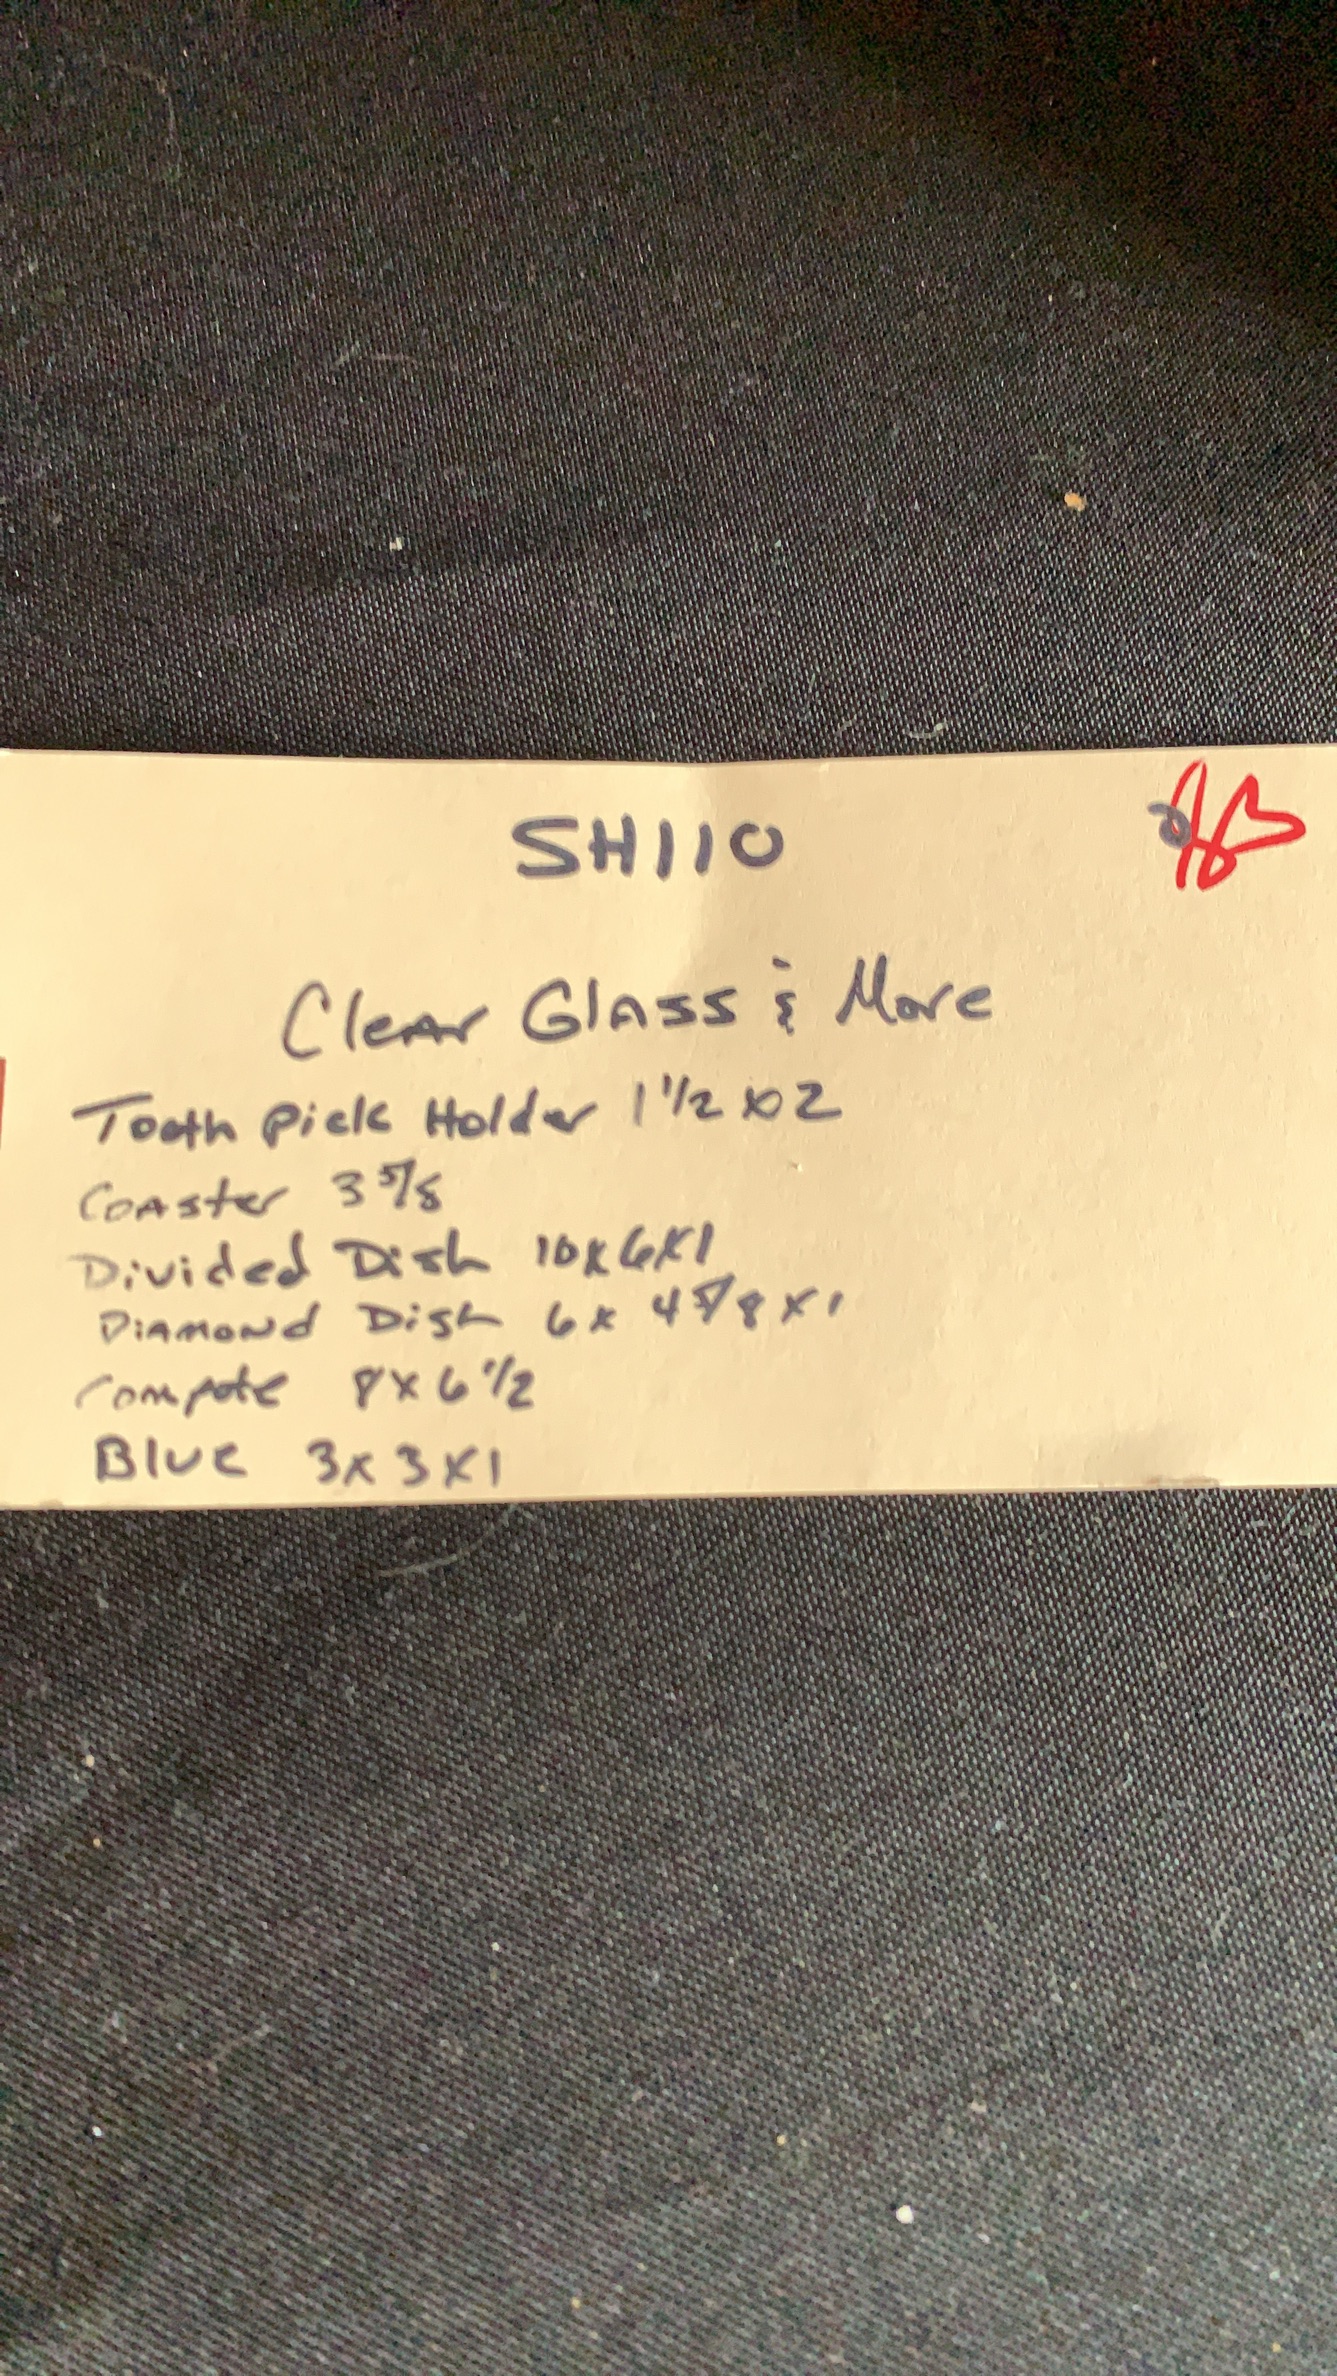 SH110
Clear Glass & More
Tooth Pick Holder 1 1/2 x 2
Coaster 3 5/8
Divided Dish 10x6x1
Diamond Dish 6x 4 5/8 x1
Compote 8x6 1/2
Blue 3x3x1